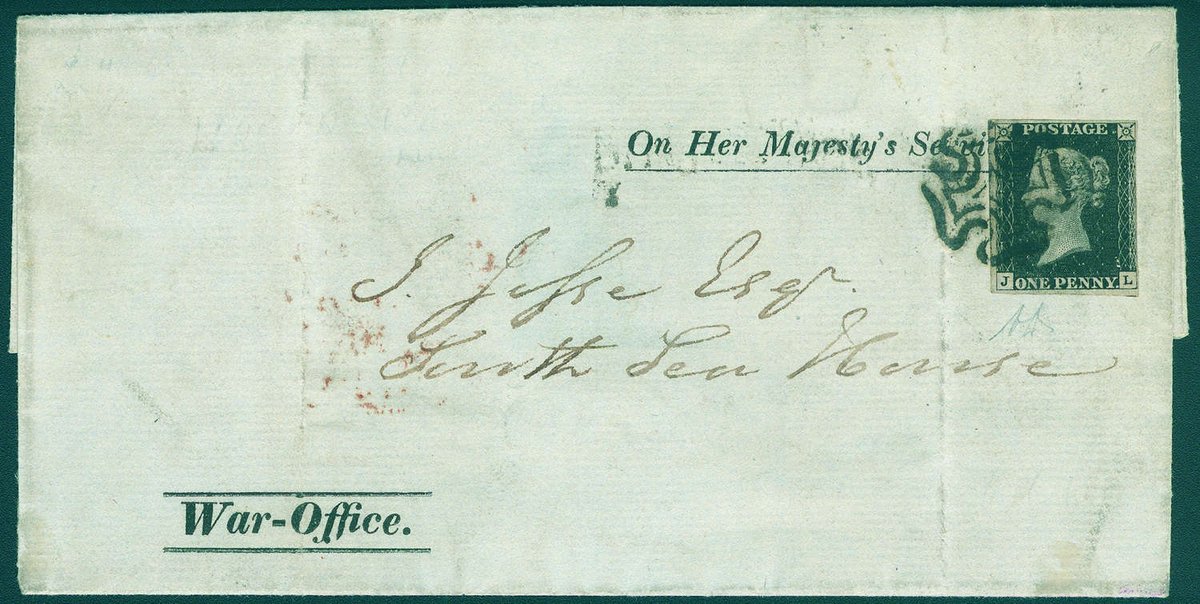 On Her Majesty's Servi
POSTAGE
J L
ONE PENNY
J. Jesse Esqr.
South Sea House
War-Office.